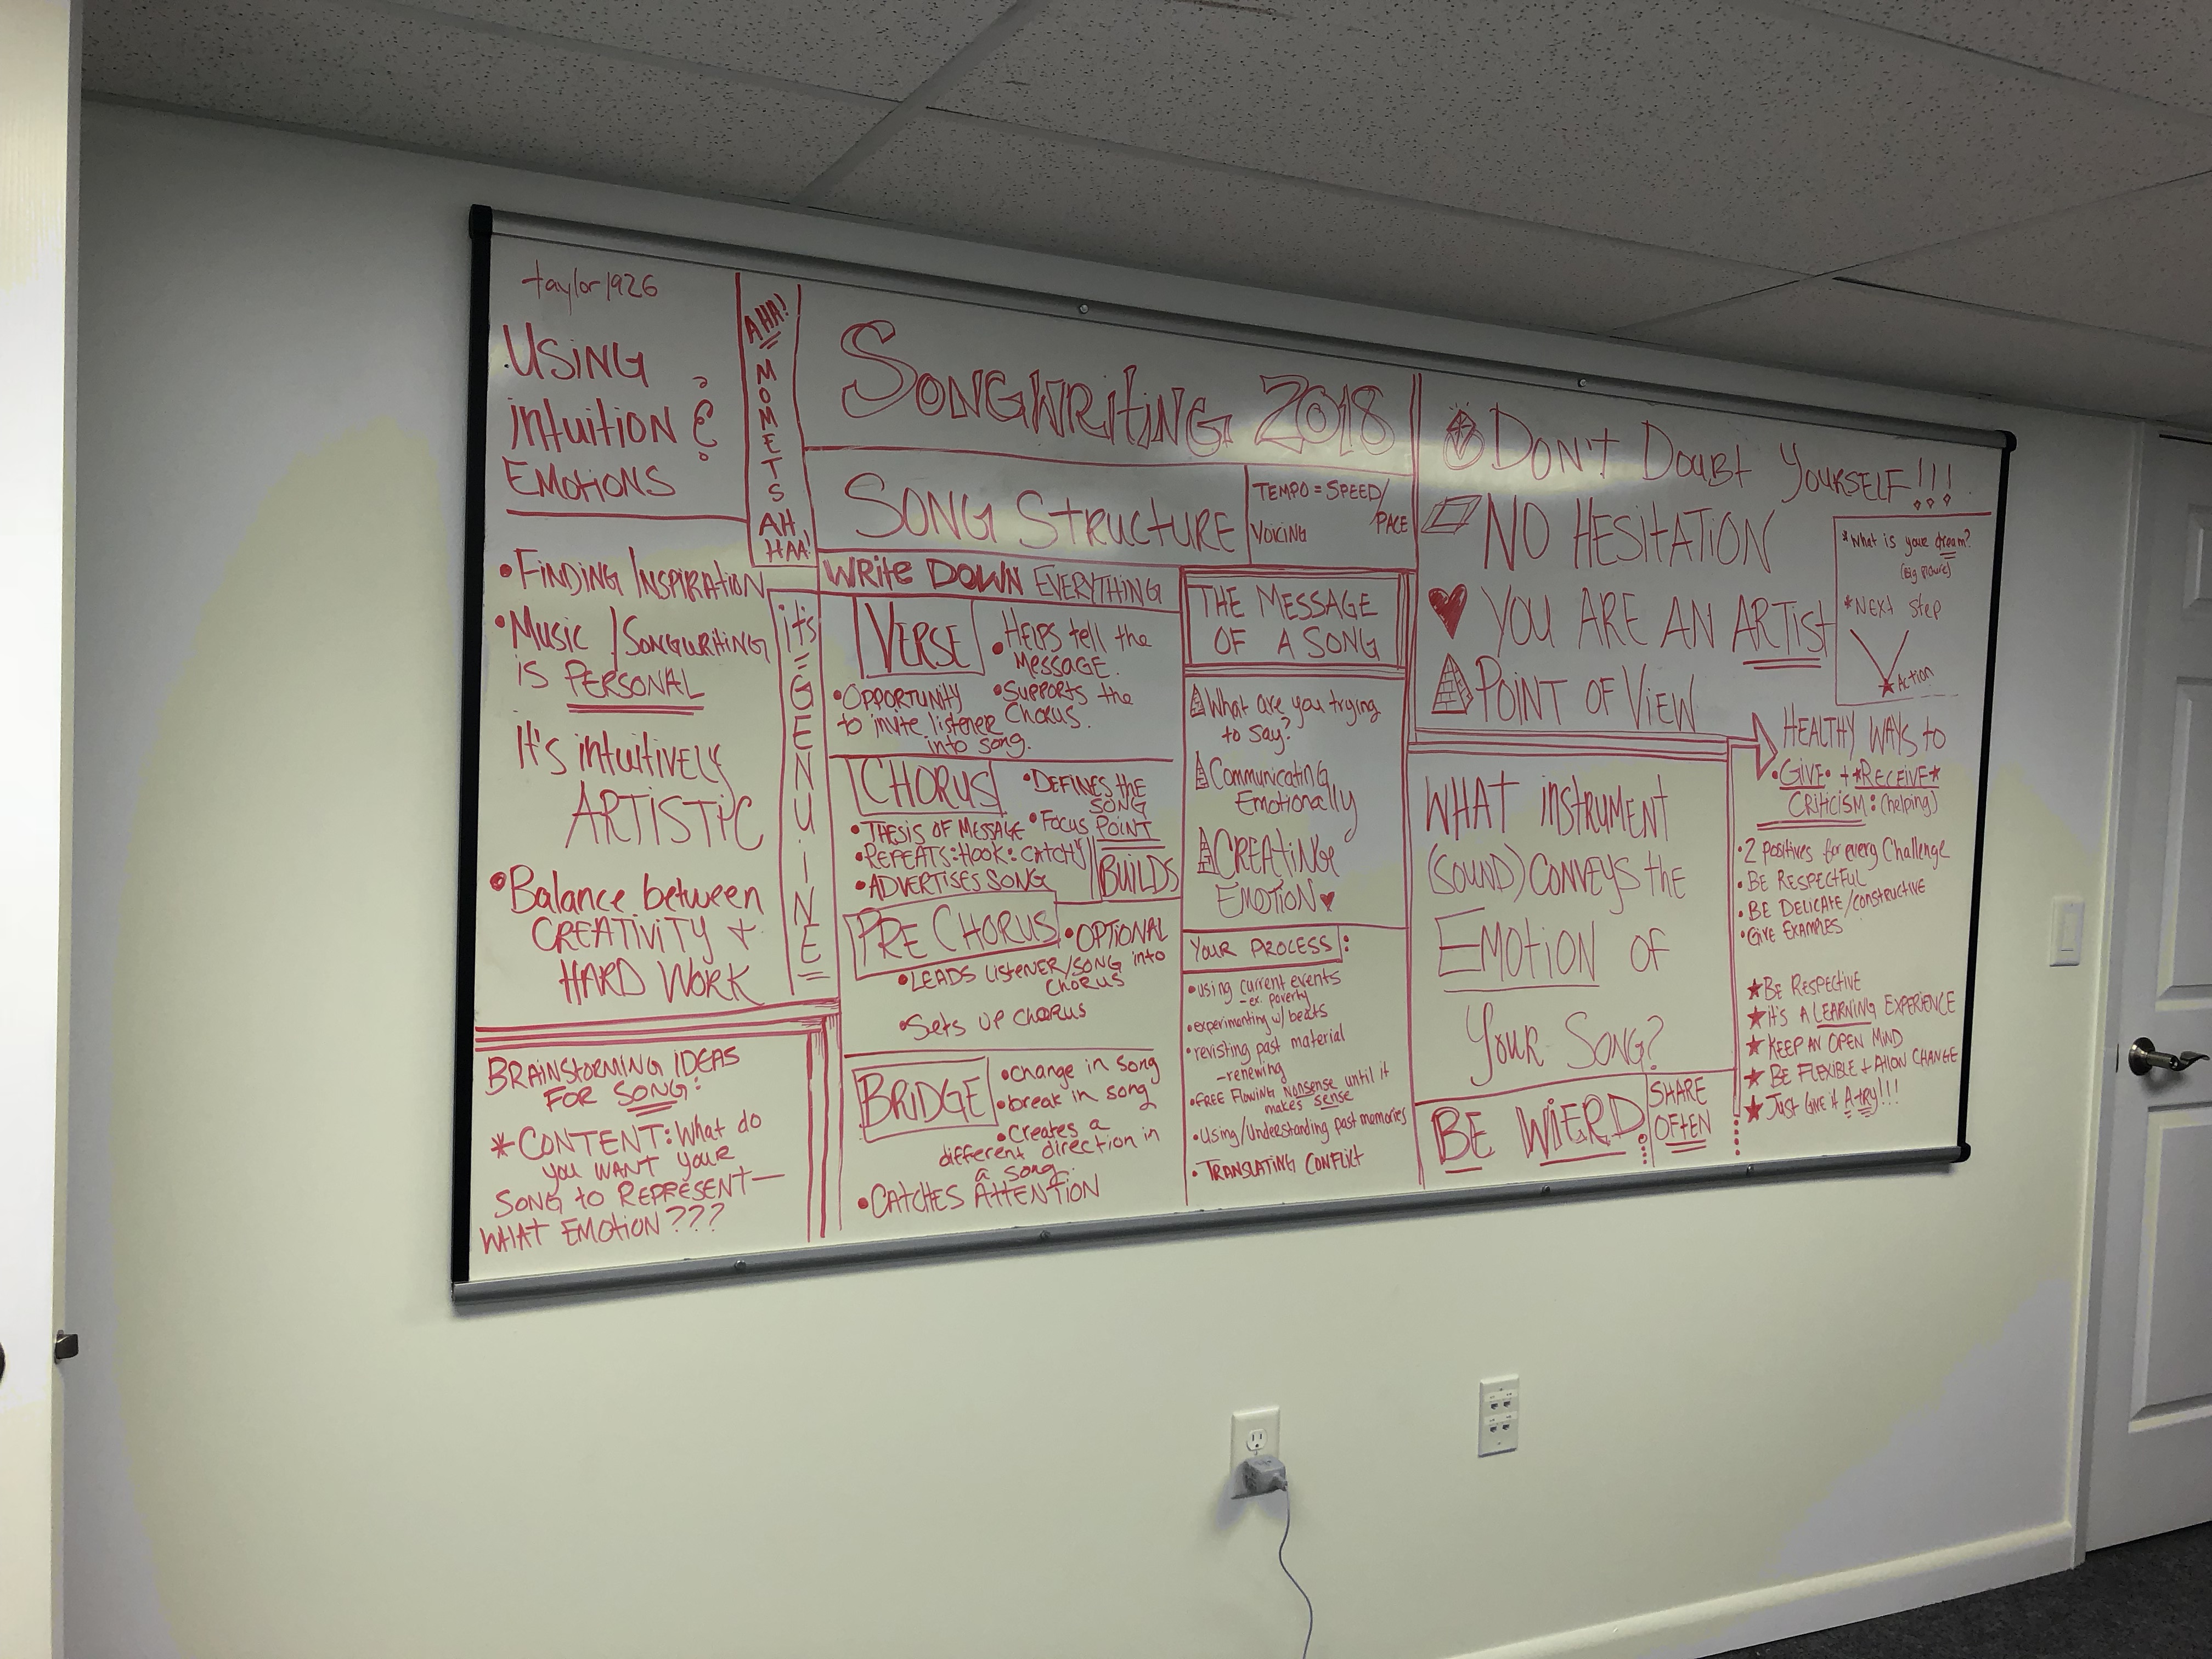 taylor1926
USING
intuition &
EMOTIONS
• FINDING INSPIRATION
• MUSIC / SONGWRITING
is PERSONAL
It's intuitively
ARTISTIC
• Balance between
CREATIVITY +
HARD WORK
BRAINSTORMING IDEAS
FOR SONG:
* CONTENT: What do
you WANT YOUR
SONG to REPRESENT—
WHAT EMOTION ???
AHA!
MOMETS
AH
HAA!
it's
GENUINE
SONGWRITING 2018
SONG STRUCTURE
TEMPO = SPEED/
PACE
VOICING
WRITE DOWN EVERYTHING
VERSE
• HELPS tell the
MESSAGE.
• OPPORTUNITY
to invite listener
into song.
• SUPPORTS the
CHORUS.
CHORUS
• DEFINES the
SONG
• THESIS OF MESSAGE
• FOCUS POINT
• REPEATS: HOOK: CATCHY
• ADVERTISES SONG
BUILDS
PRE CHORUS
• OPTIONAL
• LEADS LISTENER/SONG into
CHORUS
• Sets UP CHORUS
BRIDGE
• change in song
• break in song
• Creates a
different direction in
a song.
• CATCHES ATTENTION
THE MESSAGE
OF A SONG
What are you trying
to say?
Communicating
Emotionally
CREATING
EMOTION
YOUR PROCESS:
• using current events
- ex. poverty
• experimenting w/ beats
• revisting past material
- renewing
• FREE FLOWING NONSENSE until it
makes sense
• Using/Understanding past memories
• TRANSLATING CONFLICT
DON'T DOUBT YOURSELF!!!
NO HESITATION
YOU ARE AN ARTIST
POINT OF VIEW
* What is your dream?
(Big picture)
* NEXT Step
Action
WHAT instRUMENT
(SOUND) CONVEYS the
EMOTION OF
YOUR SONG?
BE WIERD
SHARE
OFTEN
HEALTHY WAYS to
• GIVE • + *RECEIVE*
CRITICISM: (helping)
• 2 positives for every Challenge
• BE RESPECTFUL
• BE DELICATE/CONSTRUCTIVE
• GIVE EXAMPLES
★ BE RESPECTIVE
★ it's A LEARNING EXPERIENCE
★ KEEP AN OPEN MIND
★ BE FLEXIBLE + Allow CHANGE
★ Just Give it A try!!!